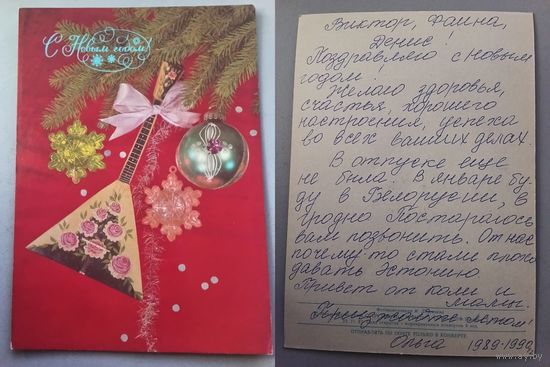 С Новым годом!
Виктор, Фаина,
Денис!
Поздравляю с Новым
годом!
Желаю здоровья,
счастья, хорошего
настроения, успеха
во всех ваших делах.
В отпуске еще
не была. В январе бу-
ду в Белоруссии, в
Гродно. Постараюсь
вам позвонить. От нас
почему-то стали
давать Эстонию.
Привет от коли и
мамы.
Приезжайте летом!
ОТПРАВЛЯТЬ ПО ПОЧТЕ ТОЛЬКО В КОНВЕРТЕ
Ольга 1989-1990